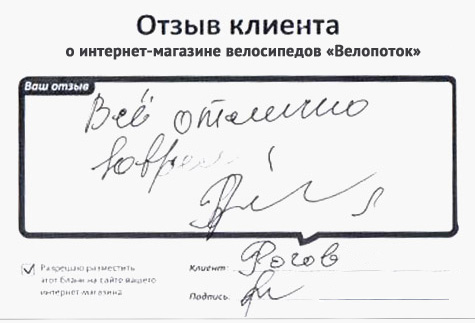 Отзыв клиента
о интернет-магазине велосипедов «Велопоток»
Ваш отзыв
Всё отлично
вовремя!
Разрешаю разместить
этот бланк на сайте вашего
интернет-магазина
Клиент: Рогов
Подпись: